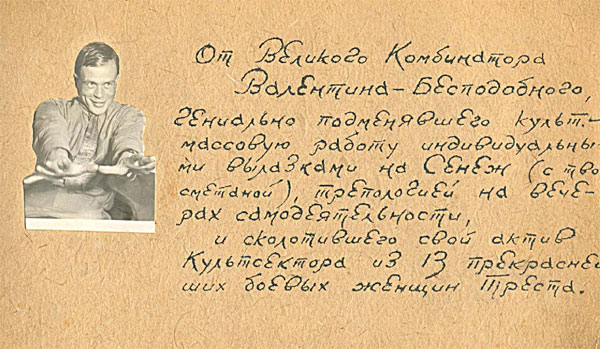 От Великого Комбинатора
Валентина-Бесподобного,
гениально подменявшего культ.-
массовую работу индивидуальны-
ми вылазками на Сенеж (с тво
сметаной), трепологией на вече-
рах самодеятельности,
и сколотившего свой актив
Культсектора из 13 прекрасней
ших боевых женщин Треста.